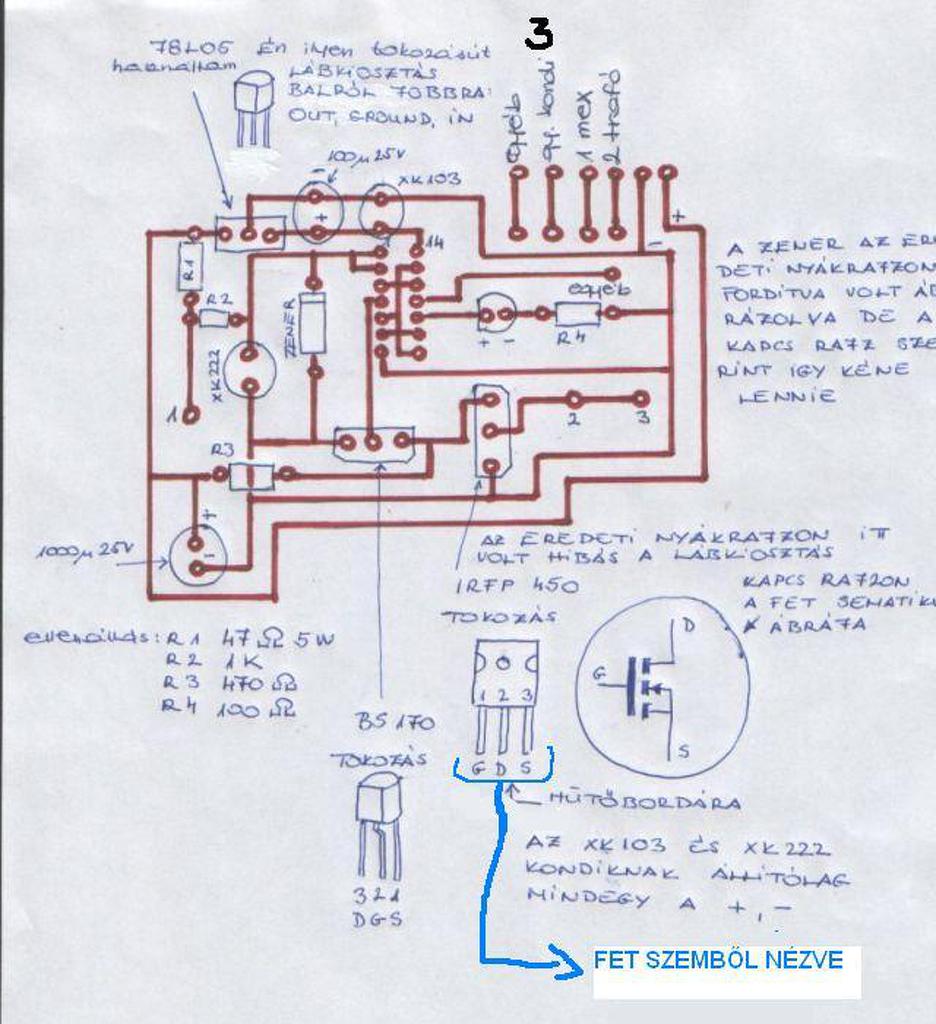 3
78L05 ÉN ILYEN TOKOZÁSÚT
használtam LÁBKIOSZTÁS
BALRÓL JOBBRA:
OUT, GROUND, IN
egyéb
gy. kondi
1 mex
2 trafó
100µ 25V
XK103
-
+
1
14
-
+
R1
R2
ZENER
egyéb
+ -
R4
XK222
1
2
3
R3
+
-
1000µ 25V
A ZENER AZ ERE
DETI NYÁKRAJZON
FORDÍTVA VOLT ÁB
RÁZOLVA DE A
KAPCS RAJZ SZE
RINT IGY KÉNE
LENNIE
AZ EREDETI NYÁKRAJZON ITT
VOLT HIBÁS A LÁBKIOSZTÁS
IRFP 450
TOKOZÁS
KAPCS RAJZON
A FET SEMATIKU
ÁBRÁJA
D
G
S
ellenállás: R1 47Ω 5W
R2 1K
R3 470Ω
R4 100Ω
1 2 3
G D S
HŰTŐBORDÁRA
BS170
TOKOZÁS
3 2 1
D G S
AZ XK103 ÉS XK222
KONDIKNAK ÁLLÍTÓLAG
MINDEGY A +, -
FET SZEMBŐL NÉZVE